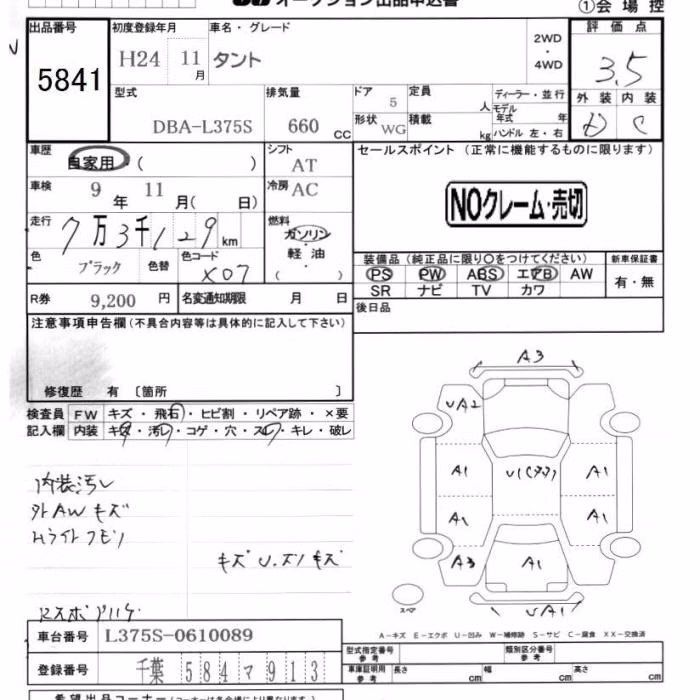 オークション出品申込書
①会場控
出品番号
5841
初度登録年月
H24 11月
車名・グレード
タント
2WD・4WD
評価点
3.5
型式
DBA-L375S
排気量
660 CC
ドア 5
形状 WG
定員 人
積載 kg
ディーラー・並行
モデル年式 年
ハンドル 左・右
外装 内装
D C
車歴
自家用 ( )
シフト AT
車検
9年 11月( 日)
冷房 AC
セールスポイント (正常に機能するものに限ります)
NOクレーム・売切
走行 7万3千129km
燃料
ガソリン・軽油
( )
色 ブラック 色替 色コード X07
装備品 (純正品に限り○をつけてください)
新車保証書
PS PW ABS エアB AW
SR ナビ TV カワ
有・無
R券 9,200円
名変通知期限 月 日
後日品
注意事項申告欄(不具合内容等は具体的に記入して下さい)
修復歴 有 〔箇所 〕
検査員記入欄
FW キズ・飛石・ヒビ割・リペア跡・×要
内装 キズ・汚レ・コゲ・穴・スレ・キレ・破レ
内装汚レ
外AWキズ
Hライトクモリ
キズU.ズレキズ
A3
UA2
A1 U1(タタ) A1
A1 A1
A3 A1
UA1
スペア
A-キズ E-エクボ U-凹み W-補修跡 S-サビ C-腐食 XX-交換済
車台番号 L375S-0610089
登録番号 千葉 584 マ 913
型式指定番号 参考
類別区分番号 参考
車庫証明用 参考 長さ cm 幅 cm 高さ cm
希望出品コーナー (コーナーは各会場により異なります)